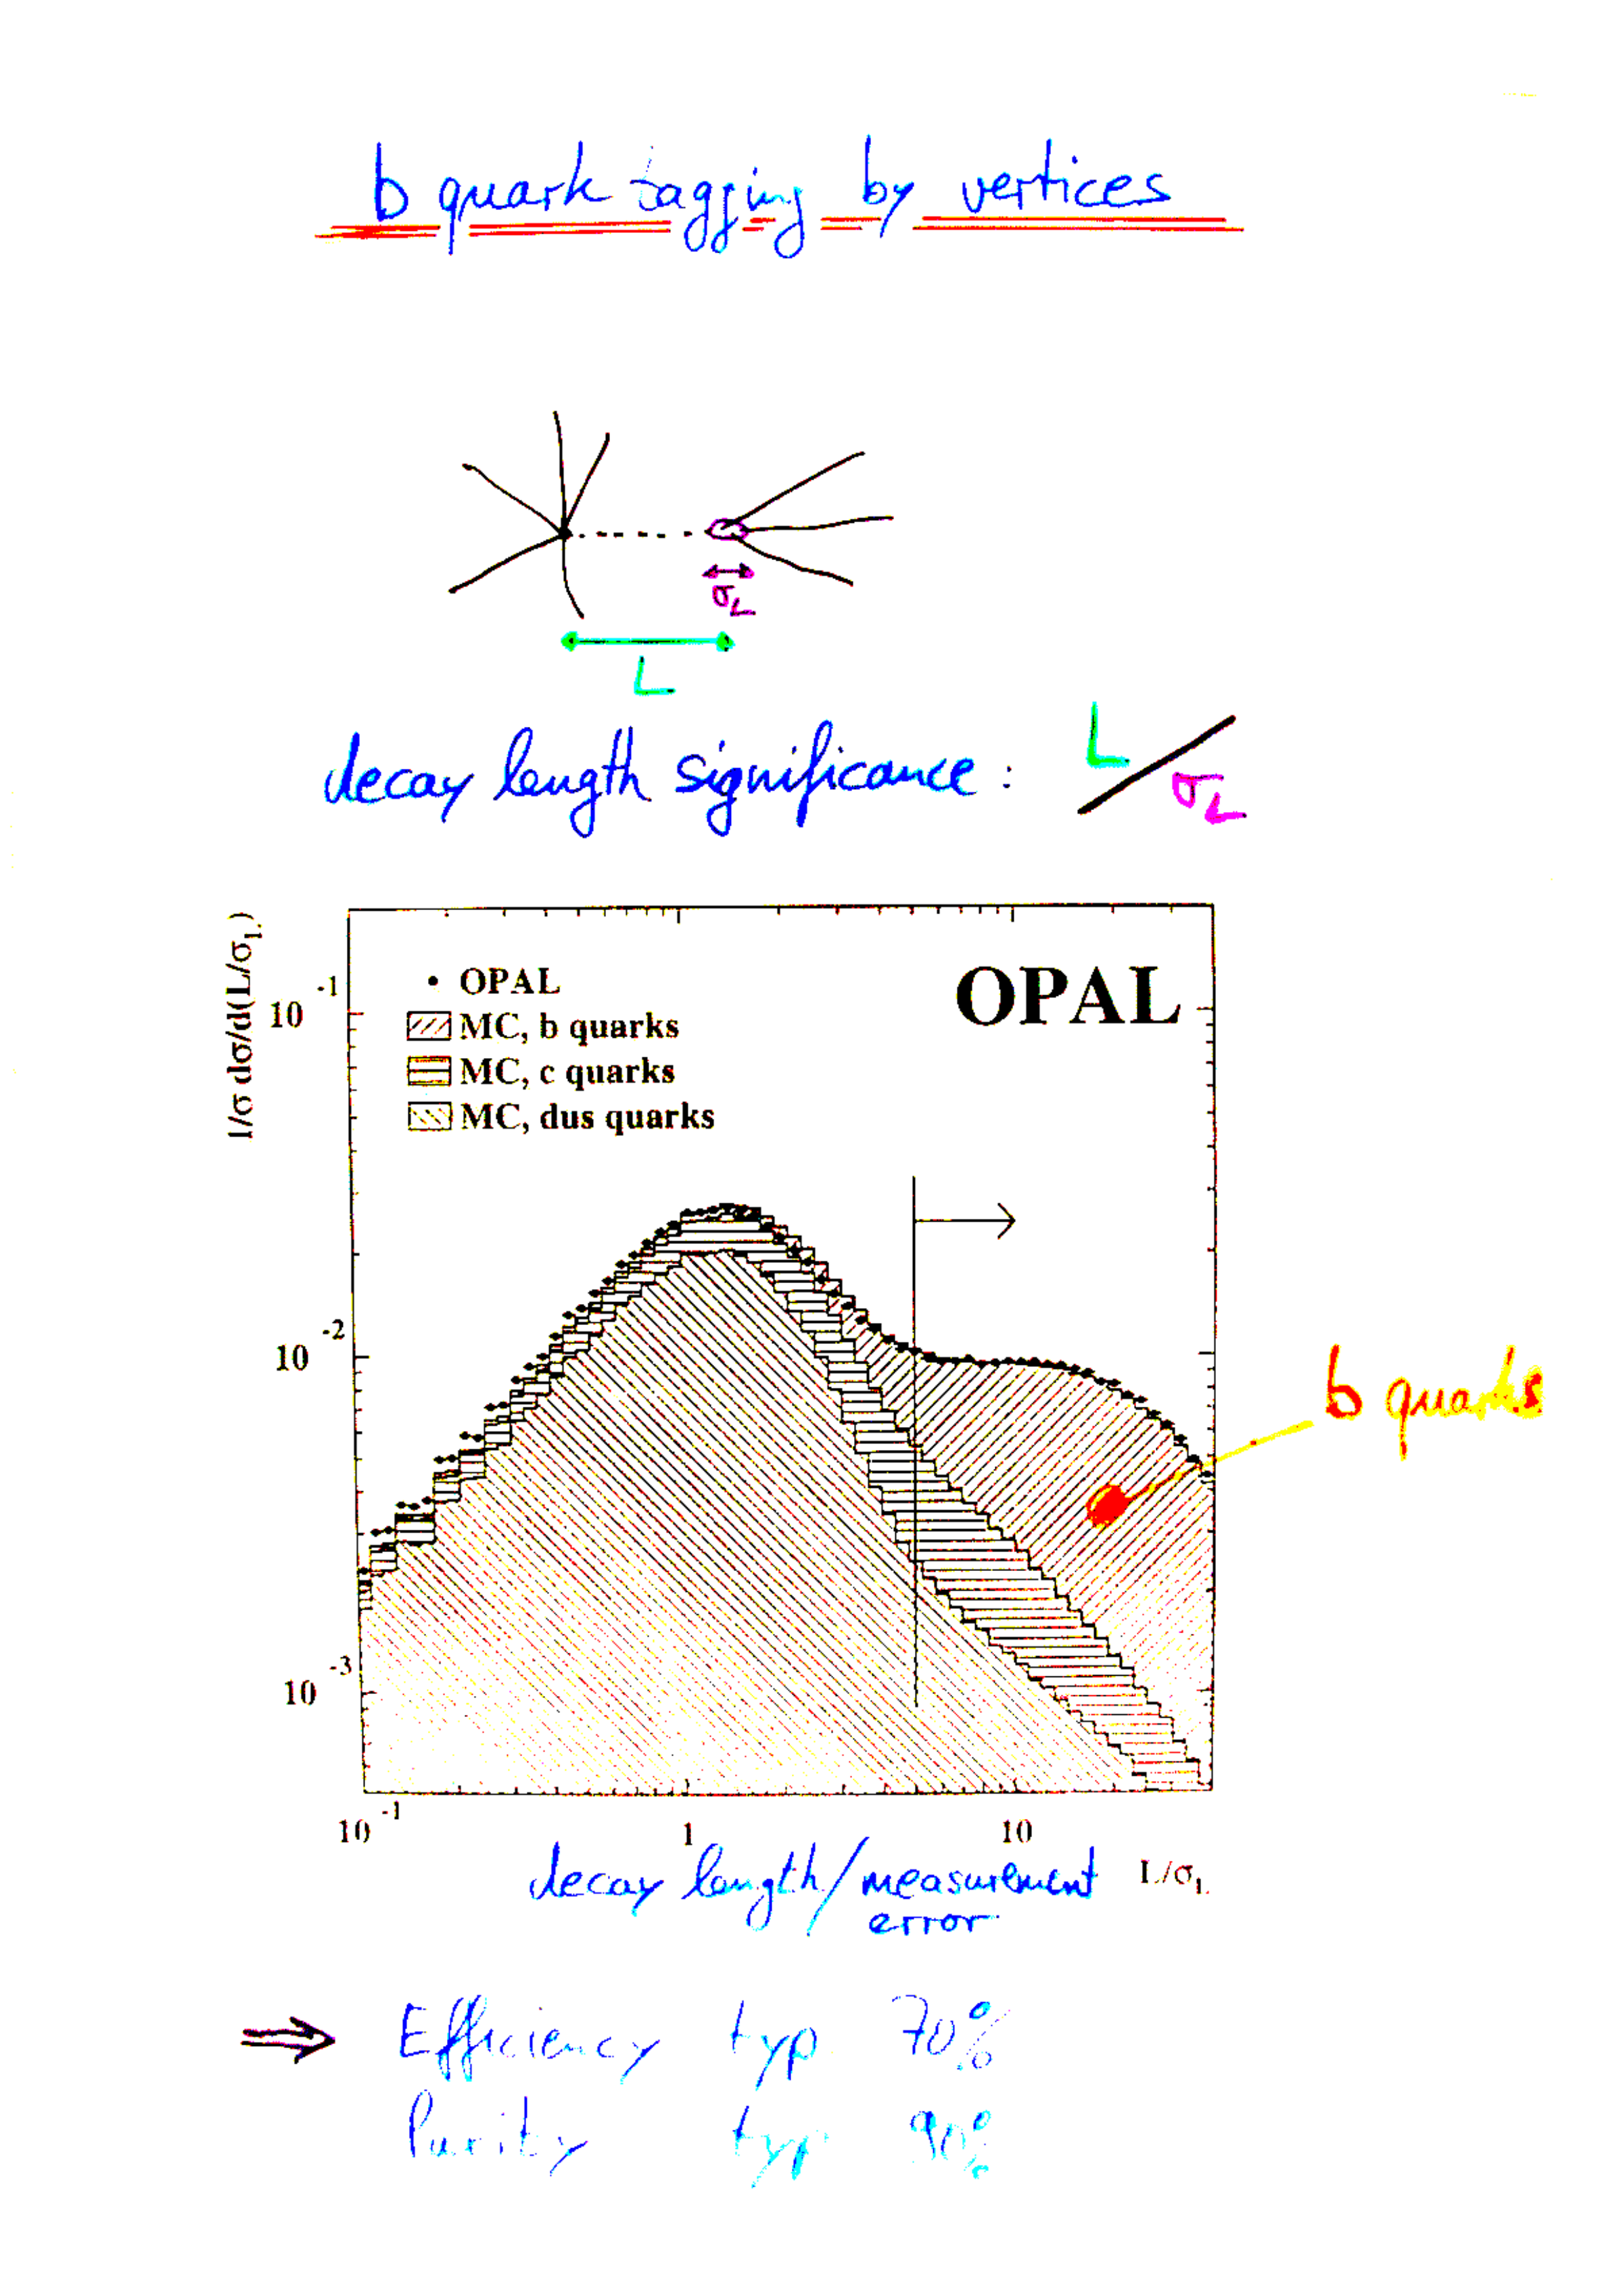 b quark tagging by vertices
σL
L
decay length significance : L/σL
1/σ dσ/d(L/σL)
OPAL
• OPAL
MC, b quarks
MC, c quarks
MC, dus quarks
10^-1
10^-2
b quarks
10^-3
10^-1 1 10
decay length / measurement error L/σL
⇒ Efficiency typ 70%
Purity typ 90%